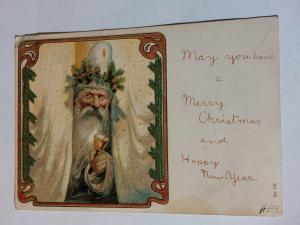 May you have
a
Merry
Christmas
and
Happy
New Year.